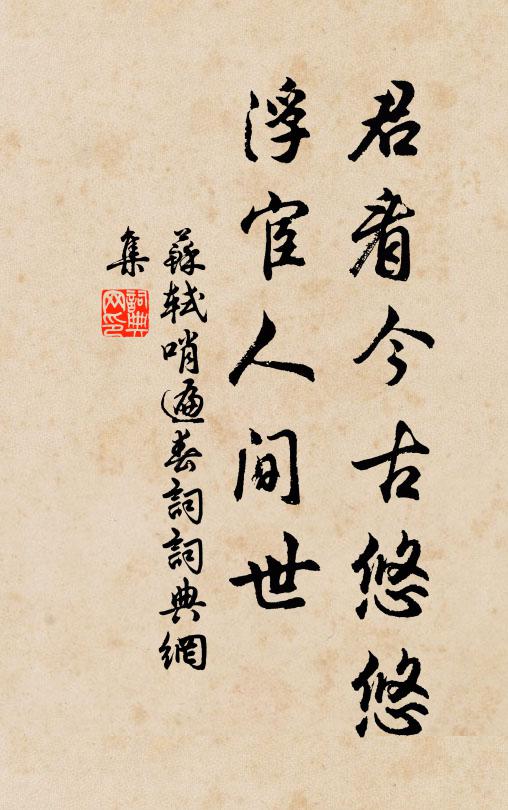 君看今古悠悠
浮宦人间世
蘇軾哨遍春詞詞典網
集
詞典网印